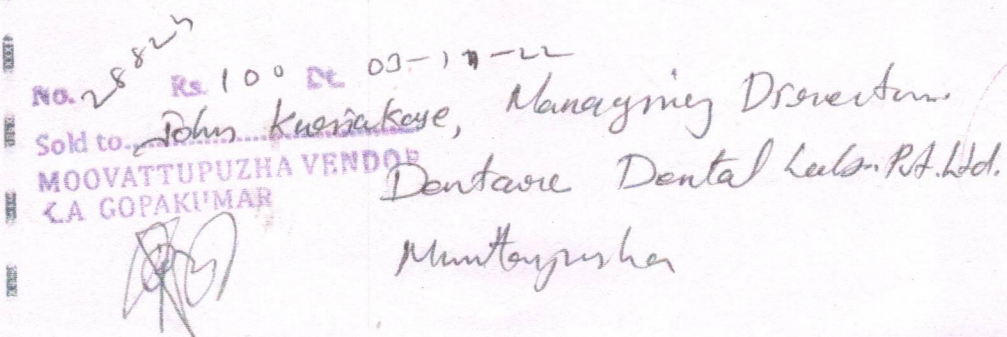 No. 28823 Rs. 100 Dt. 03-11-22
Sold to John Kuriakose, Managing Director
MOOVATTUPUZHA VENDOR Dentcare Dental Lab. Pvt. Ltd.
K.A GOPAKUMAR
Muvattupuzha